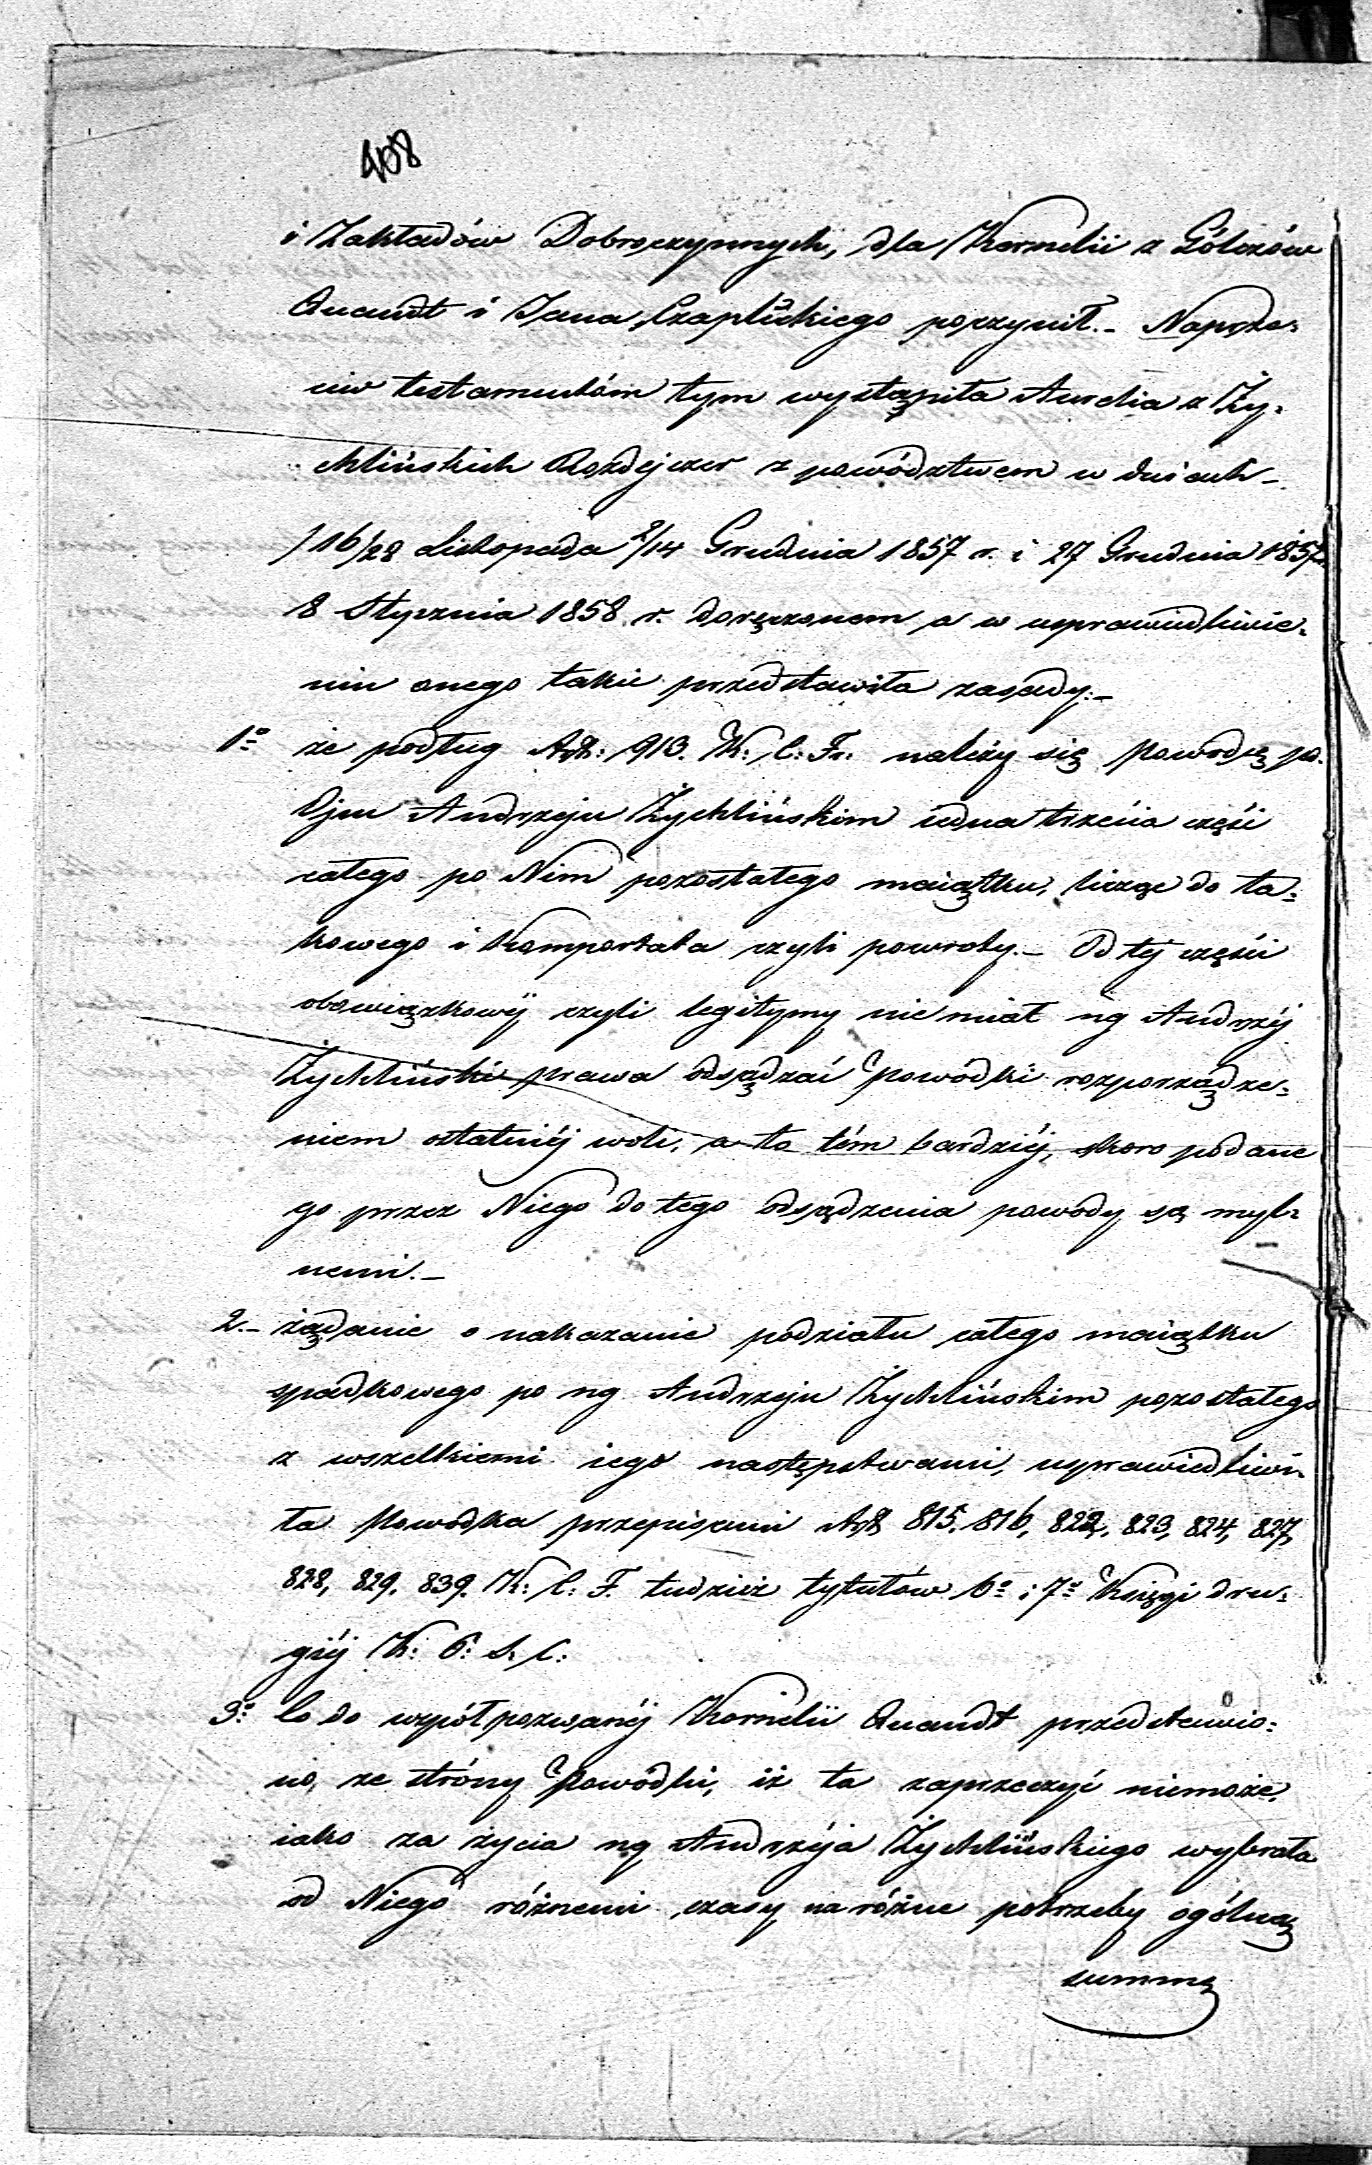 408
i Zakładów Dobroczynnych, dla Kornelii z Gólczów
Quandt i Jana Czaplickiego poczynił.- Naprze-
ciw testamentóm tym wystąpiła Aurelia z Ży-
chlińskich Rozdejczer z powództwem w dniach -
/ 16/28 Listopada 2/14 Grudnia 1857 r. i 27 Grudnia 1857
8 Stycznia 1858. r. doręczonem a w usprawiedliwie-
niu onego takie przedstawiła zasady:-
1º że podług Art: 913. K: C: Fr: należy się Powodce po
Ojcu Andrzeju Żychlińskim iedna trzecia część
całego po Nim pozostałego maiątku, licząc do ta-
kowego i Komportata czyli powroty.- Od tej części
obowiązkowéj czyli legitymy nie miał ng Andrzéj
Żychliński prawa odsądzać Powódki rozporządze-
niem ostatniéj woli, a to tém bardziéj, skoro podane
go przez Niego do tego odsądzenia powody są myl-
nemi.-
2.- żądanie o nakazanie podziału całego maiątku
spadkowego po ng Andrzeju Żychlińskim pozostałego
z wszelkiemi iego następstwami, usprawiedliwi-
ła Powodka przepisami Art 815. 816, 822, 823, 824, 827,
828, 829. 839. K: C: F. tudzież tytułów 6º i 7º Księgi dru-
giéj K: P: S. C:
3º Co do współpozwanéj Kornelii Quandt przedstawio-
no, ze stróny Powódki, iż ta zaprzeczyć niemoże,
iako za życia ng Andrzéja Żychlińskiego wybrała
od Niego różnemi czasy na różne potrzeby ogólną
summę